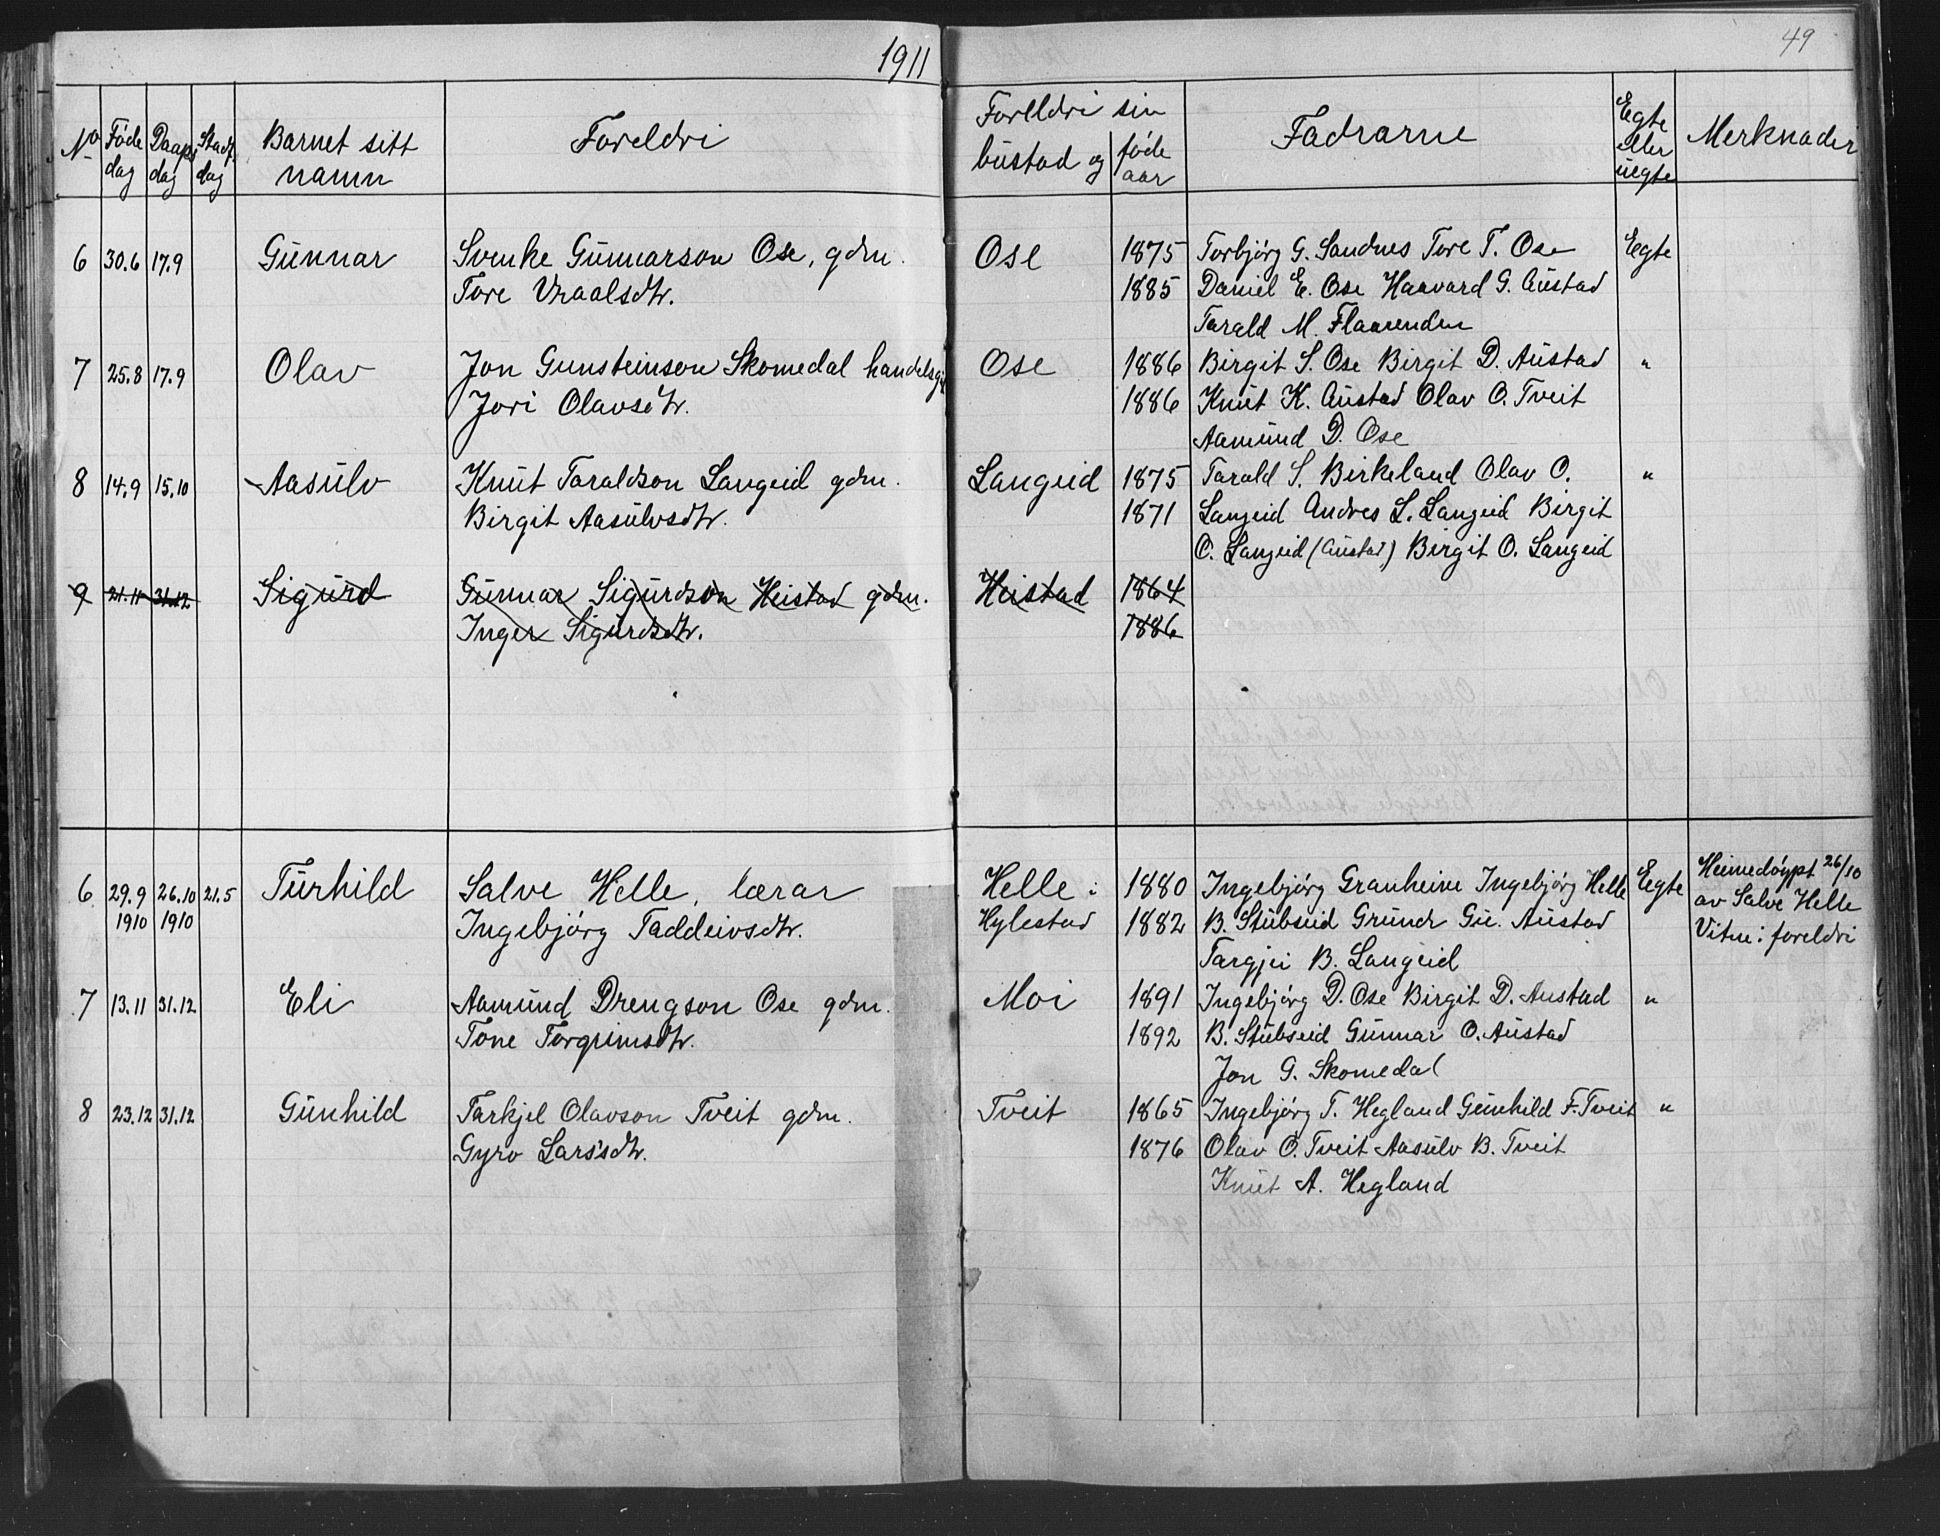 1911
49
No Føde dag Daaps dag Stadf. dag Barnet sitt namn Foreldri Foreldri sin bustad og føde aar Fadrarne Egte eller uegte Merknader
6 30.6 17.9 Gunnar Svenke Gunnarson Ose, gdm. Ose 1875 Torbjörg G. Sandnes Tore T. Ose Egte
Tore Vraalsdtr. 1885 Daniel E. Ose Haavard G. Austad
Tarald M. Flaarenden
7 25.8 17.9 Olav Jon Gunsteinson Skomedal Ose 1886 Birgit S. Ose Birgit D. Austad "
Jori Olavsdtr. 1886 Knut K. Austad Olav O. Tveit
Aamund D. Ose
8 14.9 15.10 Aasulv Knut Taraldson Langeid gdm. Langeid 1875 Tarald S. Birkeland Olav O. "
Birgit Aasulvsdtr. 1871 Langeid Andres L. Langeid Birgit
O. Langeid (Austad) Birgit O. Langeid
9 21.11 31.12 Sigurd Gunnar Sigurdson Heistad gdm. Heistad 1864
Inger Sigurdsdtr. 1886
6 29.9 26.10 21.5 Turhild Salve Helle, lærar Helle i 1880 Ingebjörg Granheim Ingebjörg Helle Egte Heimedöypt 26/10
1910 1910 Ingebjörg Taddeivsdtr. Hylestad 1882 B. Stubseid Grunde Gu. Austad av Salve Helle
Targjei B. Langeid Vitne: foreldri
7 13.11 31.12 Eli Aamund Drengson Ose gdm. Moi 1891 Ingebjörg D. Ose Birgit D. Austad "
Tone Torgrimsdtr. 1892 B. Stubseid Gunnar O. Austad
Jon G. Skomedal
8 23.12 31.12 Gunhild Tarkjel Olavson Tveit gdm. Tveit 1865 Ingebjörg T. Hegland Gunhild F. Tveit "
Gyro Larsdtr. 1876 Olav O. Tveit Aasulv B. Tveit
Knut A. Hegland